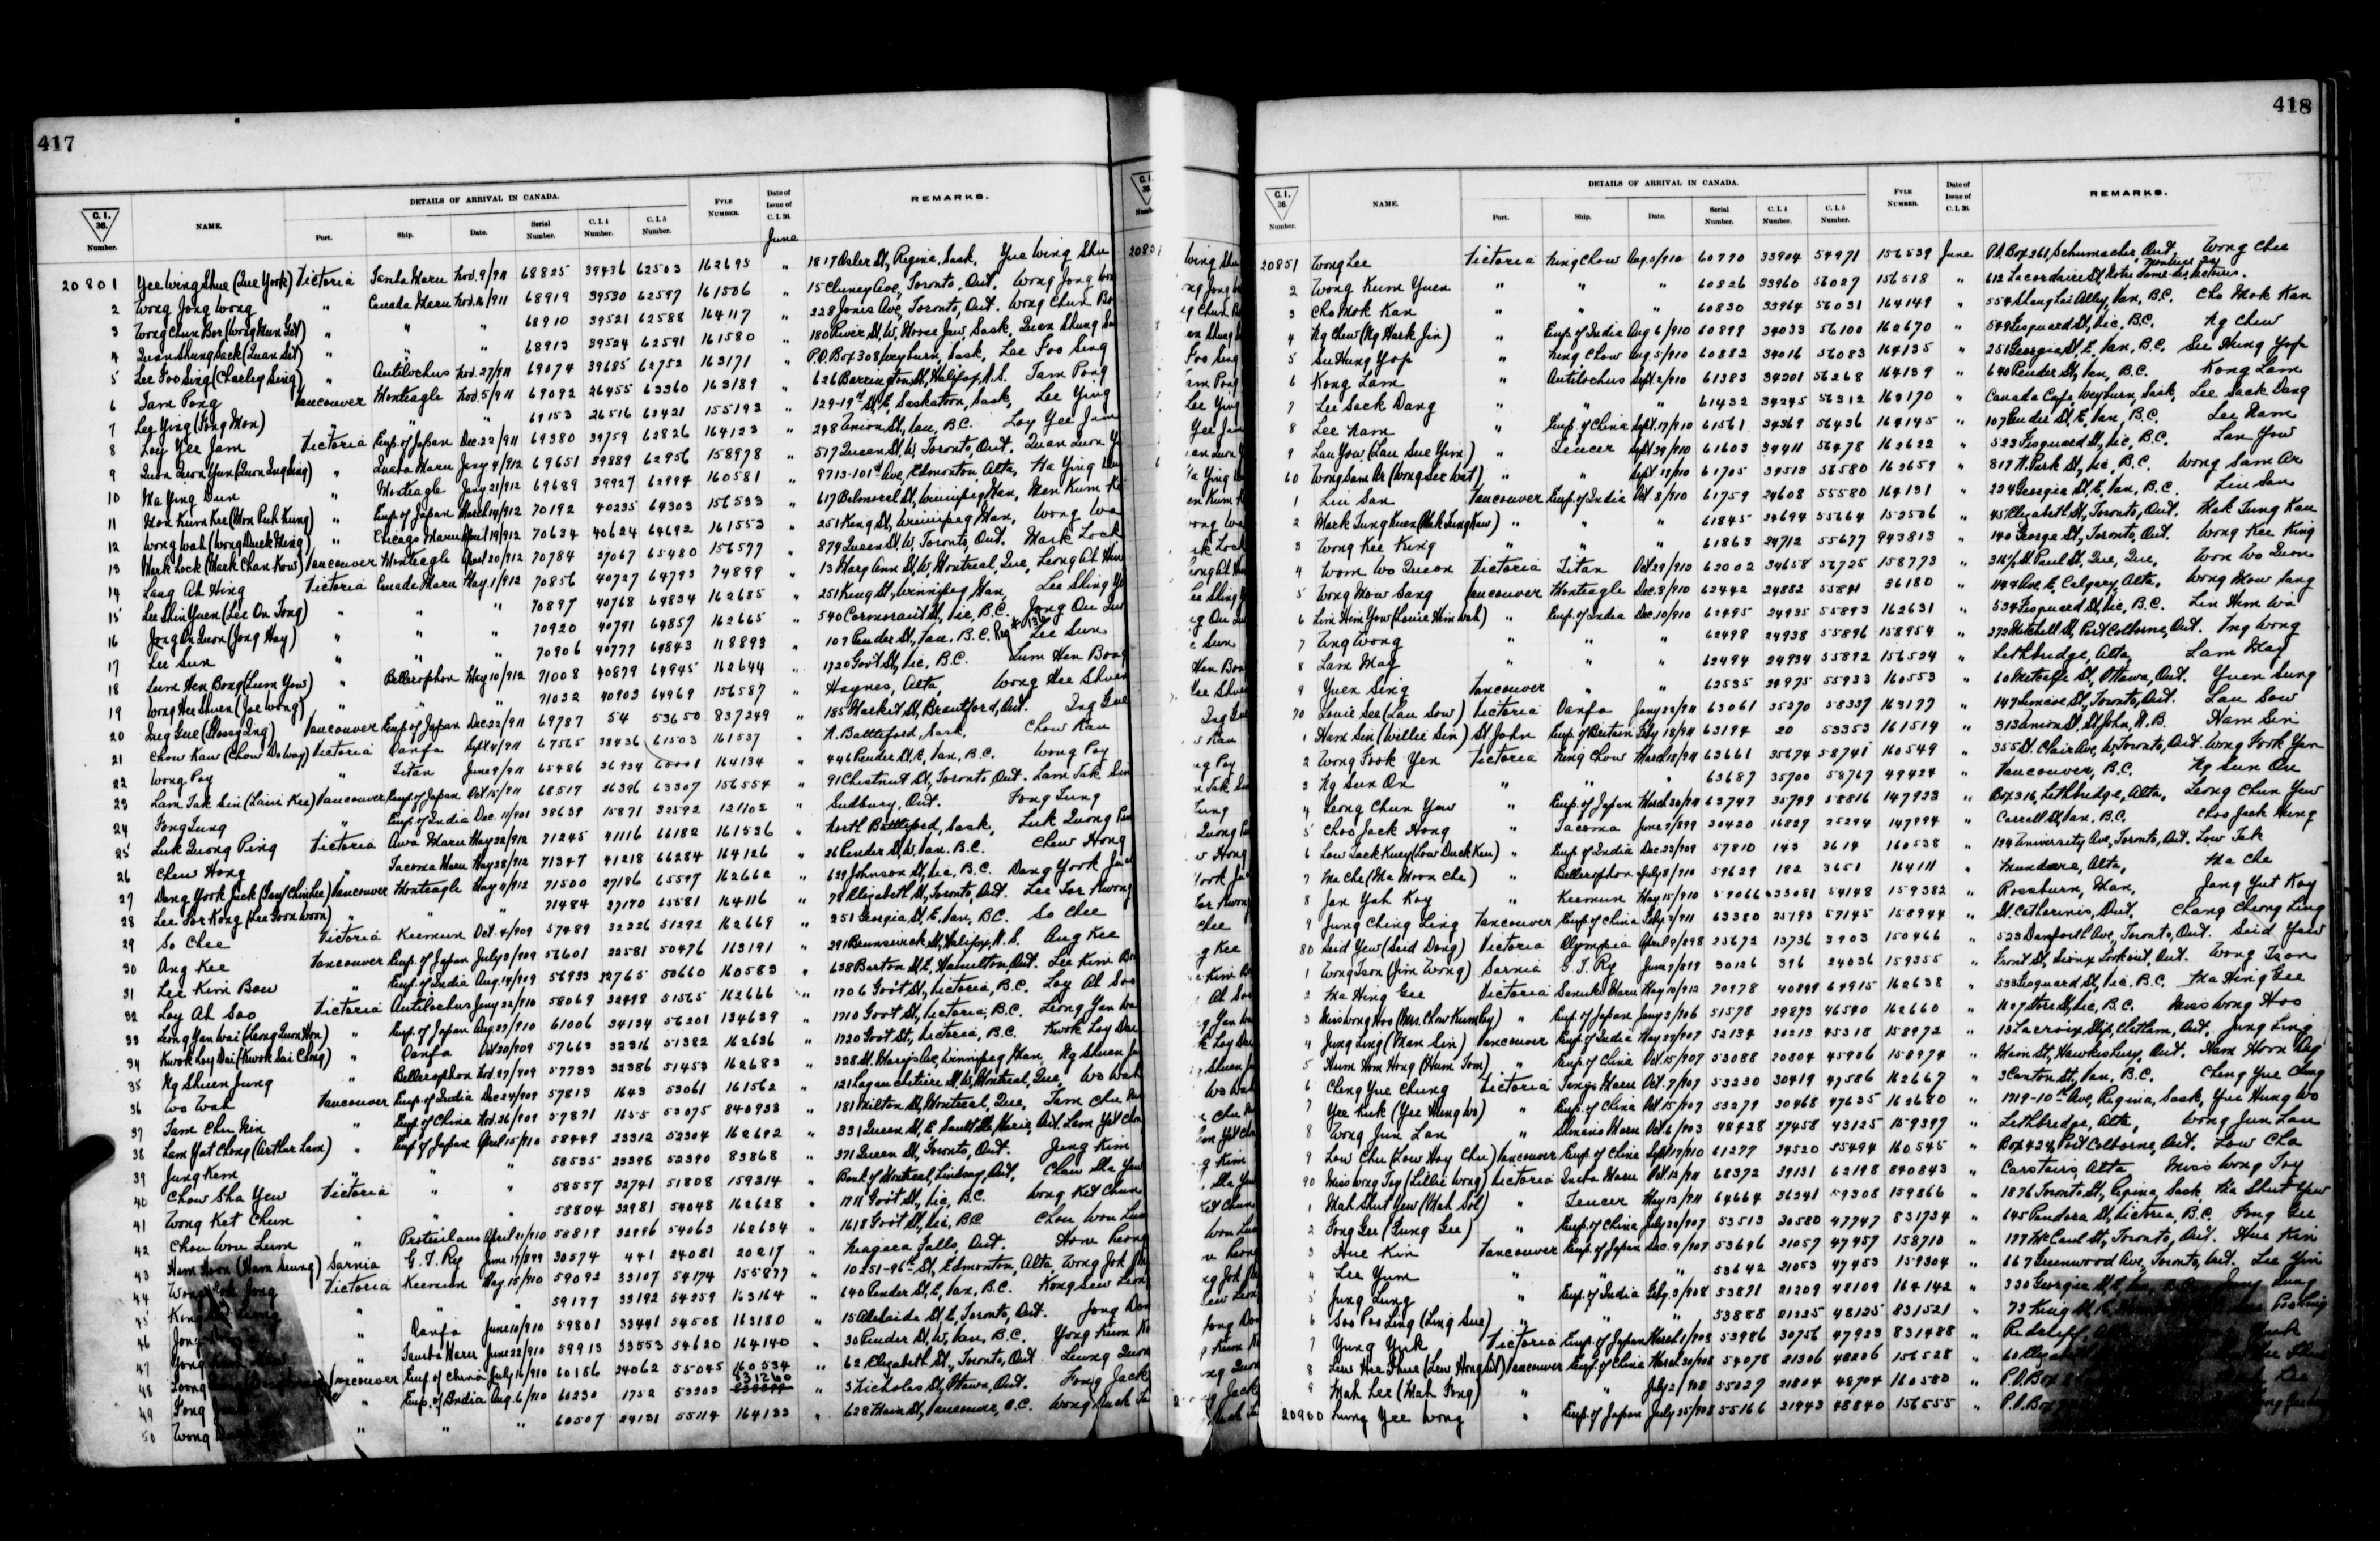 417
DETAILS OF ARRIVAL IN CANADA.
C. I. 36. Number. NAME. Port. Ship. Date. Serial Number. C. I. 4 Number. C. I. 5 Number. FYLE NUMBER. Date of Issue of C. I. 36. REMARKS.
June
20801 Yee Wing Shue (Yee York) Victoria Tamba Maru Nov. 9/911 68825 39436 62503 162695 " 1817 Osler St., Regina, Sask. Yee Wing Shu
2 Wong Jong Wong " Canada Maru Nov. 16/911 68919 39530 62597 161506 " 15 Cluney Ave, Toronto, Ont. Wong Jong Won
3 Wong Chun Bor (Wong Mun Git) " " " 68910 39521 62588 164117 " 228 Jones Ave, Toronto, Ont. Wong Chun Bo
4 Quan Shung Sack (Quan Sit) " " " 68913 39524 62591 161580 " 180 River St. W, Moose Jaw, Sask. Quan Shung Sa
5 Lee Foo Sing (Charley Sing) " Antilochus Nov. 27/911 69074 39685 62752 163171 " P.O. Box 308, Weyburn, Sask. Lee Foo Sing
6 Tam Pong Vancouver Monteagle Nov. 5/911 69092 26455 63360 163189 " 626 Barrington St, Halifax, N.S. Tam Pong
7 Lee Ying (Fong Mon) " " " 69153 26516 63421 155193 " 129-19th St. E, Saskatoon, Sask. Lee Ying
8 Loy Yee Jam Victoria Emp. of Japan Dec. 22/911 69380 39759 62826 164123 " 248 Union St, Van, B.C. Loy Yee Jam
9 Quon Quon Yun (Quon Ing Sing) " Inaba Maru Jany 4/912 69651 39889 62956 158978 " 517 Queen St. W, Toronto, Ont. Quan Quon Y
10 Ma Ying Dun " Monteagle Jany 21/912 69689 39927 62994 160581 " 9713-101st Ave, Edmonton, Alta, Ma Ying Dun
11 Mon Kum Kee (Mon Puk Kung) " Emp. of Japan March 14/912 70192 40235 64303 156533 " 617 Balmoral St, Winnipeg, Man, Men Kum K
12 Wong Wah (Wong Duck Ming) " Chicago Maru April 19/912 70634 40624 64692 161553 " 251 King St, Winnipeg, Man, Wong Wa
13 Mark Lock (Mark Chan Kow) Vancouver Monteagle April 20/912 70784 27067 65480 156577 " 879 Queen St. W, Toronto, Ont. Mark Lock
14 Lang Ah Hing Victoria Canada Maru May 1/912 70856 40727 64793 74899 " 13 Mary Ann St. W, Montreal, Que, Leong Ah Hin
15 Lee Shin Yuen (Lee On Tong) " " " 70897 40768 64834 162685 " 251 King St, Winnipeg, Man, Lee Shing Y
16 Jong On Quon (Jong Hay) " " " 70920 40791 64857 162665 " 540 Cormorant St, Vic, B.C. Jong On Qu
17 Lee Sun " " " 70906 40777 64843 118893 " 107 Pender St., Van, B.C. Lee Sun
18 Lum Hen Bong (Lum Yow) " Bellerophon May 10/912 71008 40879 64945 162644 " 1720 Gov't St, Vic, B.C. Lum Hen Bong
19 Wong Hee Shuen (Joe Wong) " " " 71032 40903 64969 156587 " Haynes, Alta, Wong Hee Shuen
20 Ing Gue (Mossy Ing) Vancouver Emp. of Japan Dec. 22/911 69787 54 53650 837249 " 185 Market St, Brantford, Ont. Ing Gue
21 Chow Kaw (Chow Do Way) Victoria Oanfa Sept 4/911 67565 38436 61503 161537 " N. Battleford, Sask. Chow Kau
22 Wong Poy " Titan June 9/911 65486 36934 60001 164134 " 446 Pender St. E, Van, B.C. Wong Poy
23 Lam Tak Sin (Laini Kee) Vancouver Emp. of Japan Oct 15/911 68517 26396 63307 156554 " 91 Chestnut St, Toronto, Ont. Lam Tak Sin
24 Fong Tung " Emp. of India Dec. 11/901 38639 15871 33592 121102 " Sudbury, Ont. Fong Tung
25 Luk Quong Ping Victoria Awa Maru May 22/912 71245 41116 66182 161536 " North Battleford, Sask, Luk Quong Pin
26 Chew Hong " Tacoma Maru May 28/912 71347 41218 66284 164126 " 26 Pender St, W. Van. B.C. Chew Hong
27 Dang York Jack Vancouver Monteagle May 11/912 71500 27186 65597 162662 " 629 Johnson St, Vic, B.C. Dang York Ja
28 Lee Sor Kong (Lee Goon Woon) " " " 71484 27170 65581 164116 " 78 Elizabeth St, Toronto, Ont. Lee Sor Kwong
29 So Chee Victoria Keemun Oct. 4/909 57489 32226 51292 162669 " 251 Georgia St, E, Van, B.C. So Chee
30 Ang Kee Vancouver Emp. of Japan July 3/909 56601 22581 50476 163191 " 291 Brunswick St, Halifax, N.S. Ang Kee
31 Lee Kim Bow " Emp. of India Aug. 14/909 56933 22765 50660 160583 " 638 Barton St. E, Hamilton, Ont. Lee Kim Bo
32 Loy Ah Soo Victoria Antilochus Jany 22/910 58069 32498 51565 162666 " 1706 Gov't St, Victoria, B.C. Loy Ah Soo
33 Leong Yan Wai (Leong Quon Hon) " Emp. of Japan Aug. 27/910 61006 34134 56201 134639 " 1710 Gov't St, Victoria, B.C. Leong Yan Wa
34 Kwok Loy Dai (Kwok Sai Cheng) " Oanfa Oct 30/909 57663 32316 51382 162636 " 1720 Gov't St., Victoria, B.C. Kwok Loy Dai
35 Ng Shuen Jung " Bellerophon Nov. 27/909 57733 32386 51453 162683 " 328 St. Mary's Ave, Winnipeg, Man, Ng Shuen Ju
36 Wo Wah Vancouver Emp. of India Dec 24/909 57813 1643 53061 161562 " 121 Lagauchetiere St. W, Montreal, Que, Wo Wah
37 Tam Chu Nin " Emp. of China Nov. 26/909 57871 1655 53075 840933 " 181 Milton St, Montreal, Que, Tam Chu
38 Lam Yat Chong (Arthur Lam) " Emp. of Japan April 15/910 58449 23312 52304 162692 " 331 Queen St, E, Sault Ste Marie, Ont. Lam Yat Chon
39 Jung Kem " " " 58535 23398 52390 83868 " 371 Queen St, Toronto, Ont. Jung Kim
40 Chow Sha Yew Victoria " " 58557 32741 51808 159214 " Bank of Montreal, Lindsay, Ont, Chow Sha Yew
41 Wong Kat Chun " " " 58804 32981 54048 162628 " 1711 Gov't St, Vic, B.C. Wong Kit Chun
42 Chou Won Lum " Protesilaus April 21/910 58819 32996 54063 162634 " 1618 Gov't St, Vic, B.C. Chou Won Lum
43 Ham Hoon (Ham Leung) Sarnia G. T. Ry June 17/899 30574 441 24081 20217 " Niagara Falls, Ont. Hom Leong
44 Wong Jok Jong Victoria Keemun May 15/910 59092 33107 54174 155877 " 10251-96th St, Edmonton, Alta, Wong Jok
45 Kong " " " 59177 33192 54259 163164 " 640 Pender St, E, Van, B.C. Kong Sew Leon
46 Jong " Oanfa June 10/910 59801 33441 54508 163180 " 15 Adelaide St. E, Toronto, Ont. Jong Don
47 Yong " Tamba Maru June 22/910 59913 33553 54620 164140 " 30 Pender St, W, Van, B.C. Yong Kum
48 Leong Vancouver Emp. of China July 16/910 60156 24062 55045 160534 " 62 Elizabeth St., Toronto, Ont. Leung Quon
49 Fong " Emp. of India Aug. 6/910 60230 1752 53203 831260 " 3 Nicholas St, Ottawa, Ont. Fong Jack
50 Wong " " " 60507 24131 55114 164133 " 628 Main St, Vancouver, B.C. Wong
418
DETAILS OF ARRIVAL IN CANADA.
C. I. 36. Number. NAME. Port. Ship. Date. Serial Number. C. I. 4 Number. C. I. 5 Number. FYLE NUMBER. Date of Issue of C. I. 36. REMARKS.
20851 Wong Lee Victoria Ning Chow Aug. 5/910 60770 33904 54971 156539 June P.O. Box 261, Schumacher, Ont. Wong Chee
2 Wong Kum Yuen " " " 60826 33960 56027 156518 " 612 Lacordaire St, Notre Dame des Victoires.
3 Cho Mok Kan " " " 60830 33964 56031 164149 " 554 Shang Lai Alley, Van, B.C. Cho Mok Kan
4 Ng Chew (Ng Hark Jin) " Emp. of India Aug 6/910 60899 34033 56100 162670 " 549 Fisguard St, Vic, B.C. Ng Chew
5 Su Hung Yop " Ning Chow Aug. 5/910 60882 34016 56083 164135 " 251 Georgia St. E, Van, B.C. See Hung Yop
6 Kong Lam " Antilochus Sept. 2/910 61383 34201 56268 164139 " 640 Pender St, Van, B.C. Kong Lam
7 Lee Sack Dang " " " 61432 34245 56312 163170 " Canada Cafe, Weyburn, Sask, Lee Sack Dang
8 Lee Nam " Emp. of China Sept. 17/910 61561 34369 56436 164145 " 107 Pender St, E, Van, B.C. Lee Nam
9 Lau Yow (Lau Sue Yim) " Teucer Sept 29/910 61603 34411 56478 162622 " 533 Fisguard St, Vic, B.C. Lau Yow
60 Wong Sam Or (Wong Sec Wat) " " Sept 29/910 61705 34513 56580 162659 " 817 N. Park St, Vic, B.C. Wong Sam Or
1 Liu San Vancouver Emp. of India Oct. 8/910 61759 24608 55580 164131 " 224 Georgia St, E, Van, B.C. Liu San
2 Mark Tung Kuen (Mak Tung Kaw) " " " 61845 24694 55664 153506 " 45 Elizabeth St, Toronto, Ont. Mak Tung Kau
3 Wong Kee King " " " 61863 24712 55677 943813 " 140 George St, Toronto, Ont. Wong Kee King
4 Worn Wo Queon Victoria Titan Oct 29/910 62002 34658 56725 158773 " 311½ St. Paul St, Que, Que, Won Wo Quon
5 Wong Mow Sang Vancouver Monteagle Dec. 8/910 62442 24882 55841 36180 " Ave. E, Calgary, Alta. Wong Mow Sang
6 Lim Him Yow (Louie Him Wah) " Emp. of India Dec. 10/910 62495 24935 55893 162631 " 534 Fisguard St, Vic, B.C. Lim Hem Wa
7 Ang Wong " " " 62498 24938 55896 158954 " 272 Mitchell St, Port Colborne, Ont. Ing Wong
8 Lam May " " " 62494 24934 55892 156524 " Lethbridge, Alta, Lam May
9 Yuen Sing Vancouver " " 62535 24975 55933 160553 " 60 Metcalfe St, Ottawa, Ont. Yuen Sung
70 Louie See (Lau Sow) Victoria Oanfa Jany 22/911 63061 35270 58337 163177 " 147 Simcoe St, Toronto, Ont. Lau Sow
1 Ham Sin (Willie Sin) St John Emp. of Britain Feby 18/911 63194 20 53353 161514 " 313 Union St, St. John, N.B. Ham Sin
2 Wong Fook Yen Victoria Ning Chow March 18/911 63661 35674 58741 160549 " 355 St. Clair Ave, W, Toronto, Ont. Wong Fook Yen
3 Ng Sun On " " " 63687 35700 58767 49424 " Vancouver, B.C. Ng Sun On
4 Leong Chun Yow " Emp. of Japan March 30/911 63747 35749 58816 147933 " Box 316, Lethbridge, Alta, Leong Chun Yew
5 Choo Jack Hong " Tacoma June 9/899 30420 16827 25294 147994 " Carrell St, Van, B.C. Choo Jack Hung
6 Low Tack Kuey (Low Duck Ken) " Emp. of India Dec. 23/909 57810 143 3614 160538 " 124 University Ave, Toronto, Ont. Low Tak
7 Ma Che (Ma Moon Che) " Bellerophon July 8/910 59629 182 3651 164111 " Mundare, Alta, Ma Che
8 Jan Yah Koy " Keemun May 15/910 59066 33081 54148 159382 " Rossburn, Man, Jang Yut Koy
9 Jung Ching Ling Vancouver Emp. of China Feby. 3/911 63380 25193 57145 158944 " St. Catharines, Ont. Chang Cheong Ling
80 Said Yew (Said Dong) Victoria Olympia April 9/898 25672 13736 3903 150466 " 523 Danforth Ave, Toronto, Ont. Seid Yow
1 Wong Tson (Jim Wong) Sarnia G. T. Ry June 7/899 30126 396 24036 159355 " Front St, Sioux Lookout, Ont. Wong Tson
2 Ma Hing Gee Victoria Sanuki Maru May 10/912 70978 40849 64915 162638 " 533 Fisguard St, Vic, B.C. Ma Hing Gee
3 Miss Wong Hoo (Mrs. Chow Kum Poy) " Emp. of Japan Jany 3/906 51578 29893 46540 162660 " 1607 Store St, Vic, B.C. Miss Wong Hoo
4 Jung Ling (Man Sin) Vancouver Emp. of India May 27/907 52134 20213 45318 158972 " 13 Lacroix St, Chatham, Ont. Jung Ling
5 Hum Hom Hong (Hum Tom) " Emp. of China Oct. 15/907 53088 20804 45906 158974 " Main St, Hawkesbury, Ont. Ham Hom Ong
6 Cheng Yue Chung Victoria Tango Maru Oct. 7/907 53230 30419 47586 162667 " 3 Canton St, Van, B.C. Ching Yue Chung
7 Yee Kuk (Yee Hung Wo) " Emp. of China Oct. 15/907 53279 30468 47635 162680 " 1719-10th Ave, Regina, Sask, Yue Hung Wo
8 Wong Jun Lan " Shinano Maru Oct 6/903 48428 27458 43125 159397 " Lethbridge, Alta, Wong Jun Lau
9 Low Chu (Low Hoy Chu) Vancouver Emp. of China Sept. 17/910 61277 24520 55494 160545 " Box 424, Port Colborne, Ont. Low Cha
90 Miss Wong Toy (Lillie Wong) Victoria Inaba Maru Oct. 12/911 68372 39131 62198 840843 " Carstairs, Alta Miss Wong Toy
1 Mah Shut Yew (Mah Sol) " Teucer May 12/911 64664 36241 59308 159866 " 1876 Toronto St, Regina, Sask, Ma Shut Yew
2 Fong Gee (Fung Gee) " Emp. of China July 29/907 53513 30580 47747 831734 " 645 Pandora St, Victoria, B.C. Fong Gee
3 Hue Kin Vancouver Emp. of Japan Dec. 9/907 53646 21057 47457 158710 " 177 McCaul St, Toronto, Ont. Hue Kin
4 Lee Yum " " " 53642 21053 47453 159304 " 667 Greenwood Ave, Toronto, Ont. Lee Yin
5 Jung Lung " Emp. of India Feby. 3/908 53871 21209 48109 164142 " 330 Georgia St, E, Van, B.C. Jung Lung
6 Soo Poo Ling (Ling Sue) " " " 53888 21225 48125 831521 " 73 King St,
7 Yung Yuk Victoria Emp. of Japan March 1/908 53986 30756 47923 831488 " Redcliff
8 Lew Hee Shue (Lew Hong Sit) Vancouver Emp. of China March 30/908 54078 21306 48206 156528 " 60 Elizabeth
9 Mah Lee (Mah Fong) " " July 2/908 55027 21804 48704 160580 " P.O. Box
20900 Lung Yee Wong " Emp. of Japan July 25/908 55166 21943 48840 156555 " P.O. Box